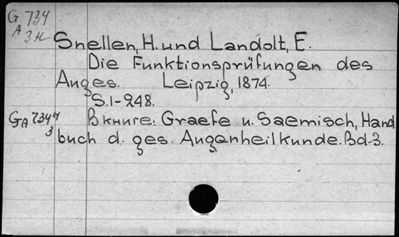 G 734
A 3н
Snellen, H. und Landolt, E.
Die Funktionsprüfungen des
Auges. Leipzig, 1874.
S.1-248.
GA 734н
3
Вкниге: Graefe u. Saemisch, Hand
buch d. ges. Augenheilkunde. Bd. 3.